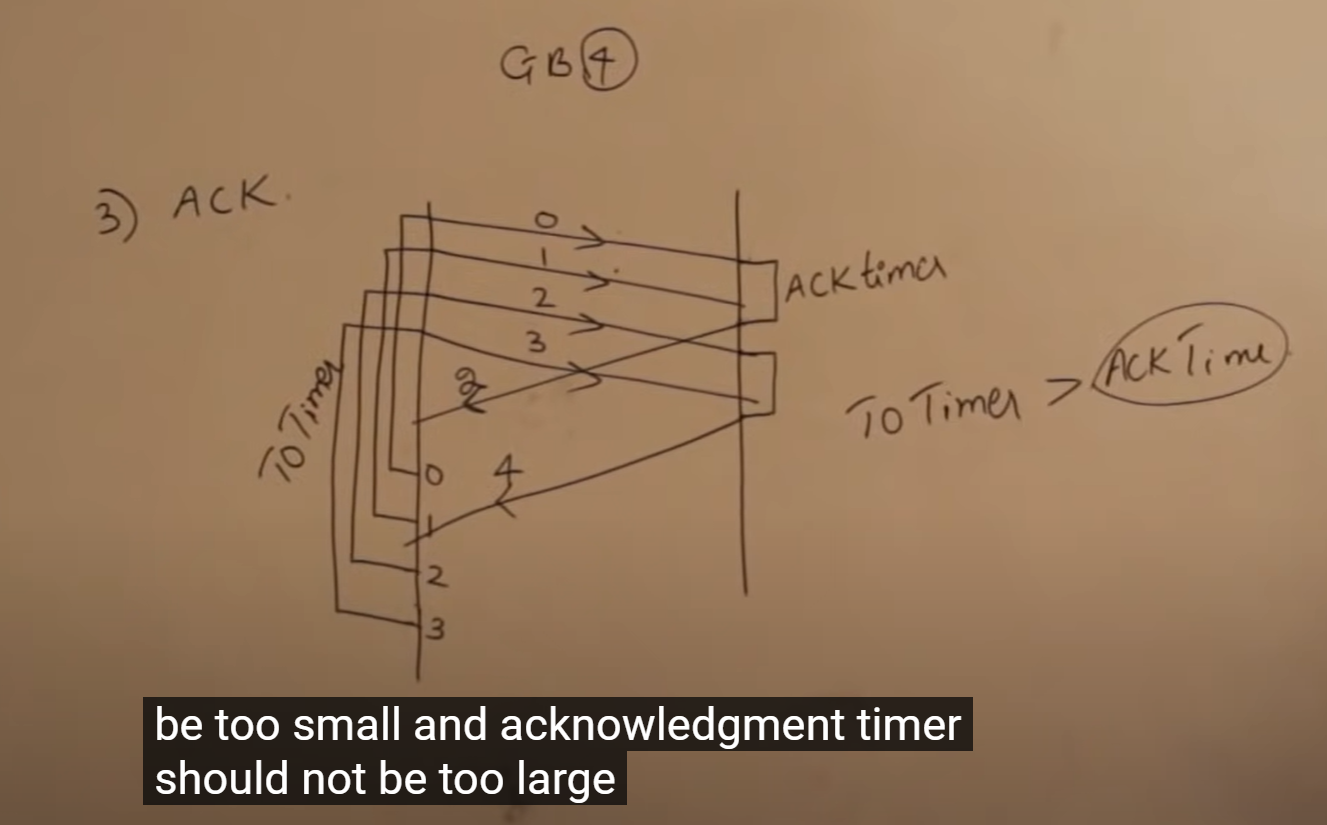 GB4
3) ACK.
0
1
2
3
ACK timer
TO Timer
2
TO Timer > ACK Time
4
0
1
2
3
be too small and acknowledgment timer
should not be too large